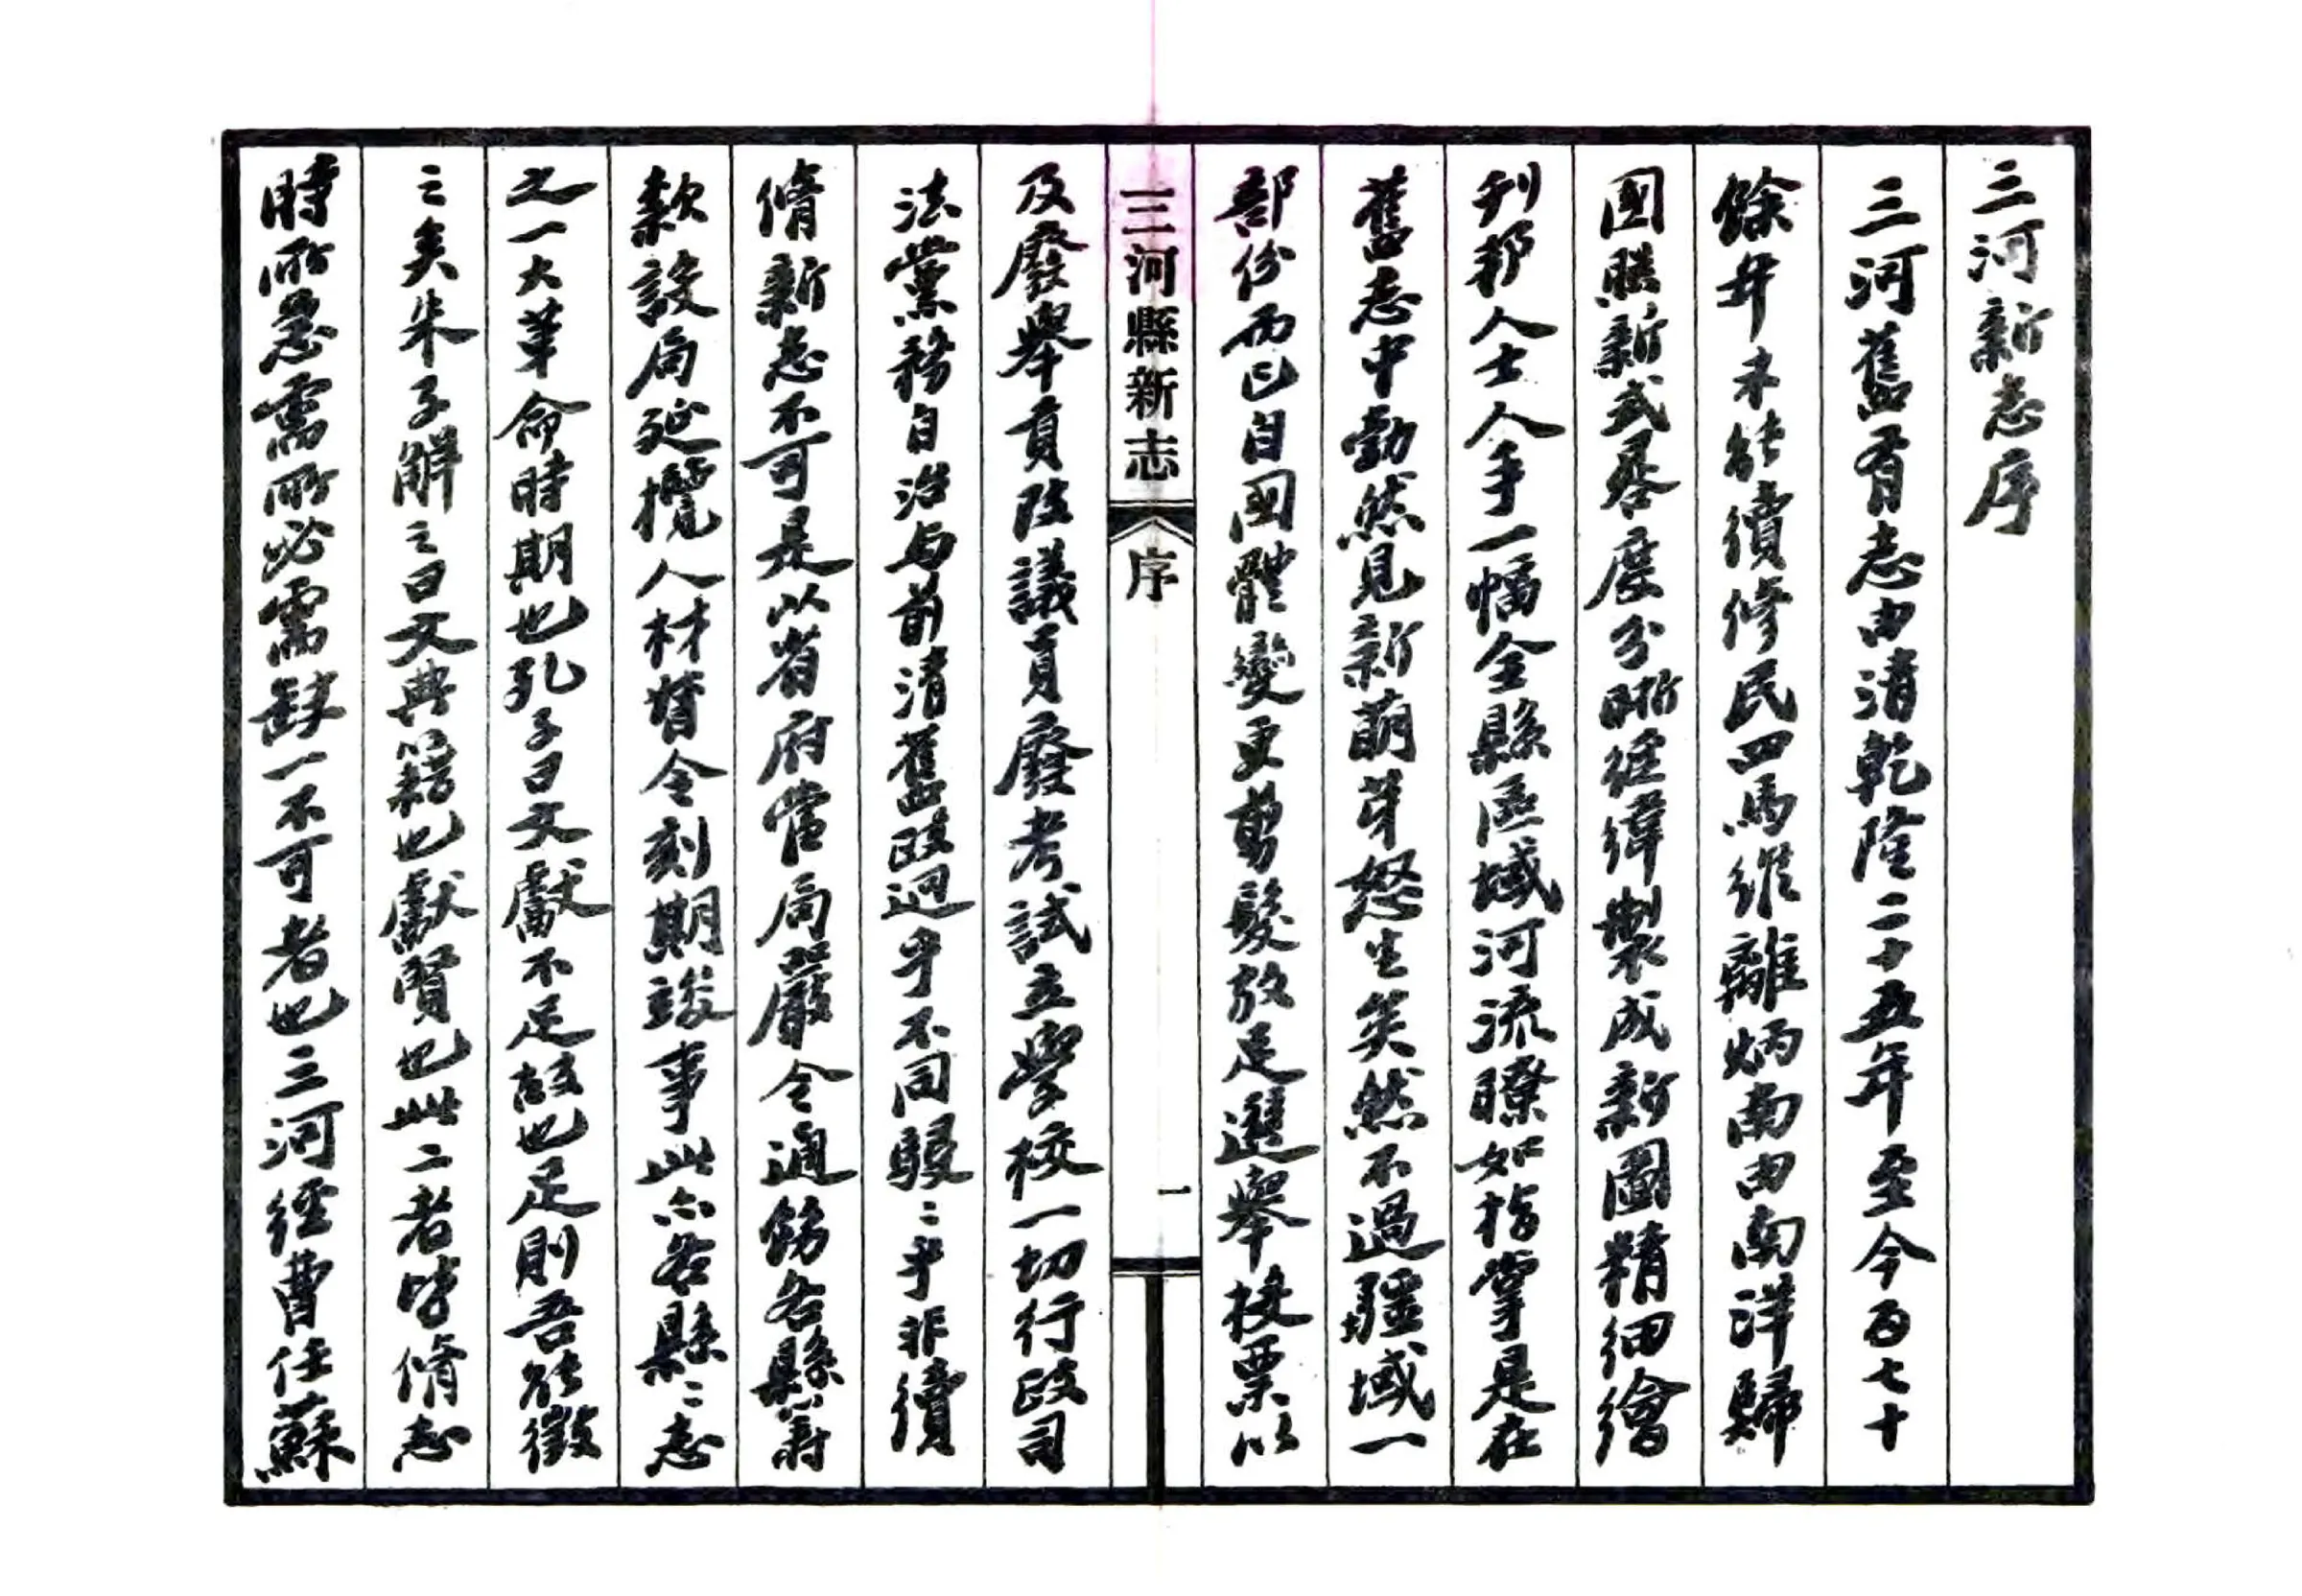 三河新志序
三河舊有志由清乾隆二十五年至今百七十
餘年未能續修民四馬維離炳南由南洋歸
國照新式晷度分晰經緯製成新圖精細繪
刋邦人士人手一幅全縣區域河流瞭如指掌是在
舊志中勃然見新萌芽怒生矣然不過疆域一
部份而已自国體變更剪髮放足選舉投票以
三河縣新志
序
一
及廢舉貢改議員廢考試立學校一切行政司
法黨務自治与前清舊政迥乎不同駸〻乎非續
脩新志不可是以省府當局嚴令通飭各縣籌
款設局延攬人材督令刻期竣事此亦各縣〻志
之一大革命時期也孔子曰文獻不足故也足則吾能徵
之矣朱子解之曰文典籍也獻賢也此二者皆脩志
時所急需所必需缺一不可者也三河經曹任蘇